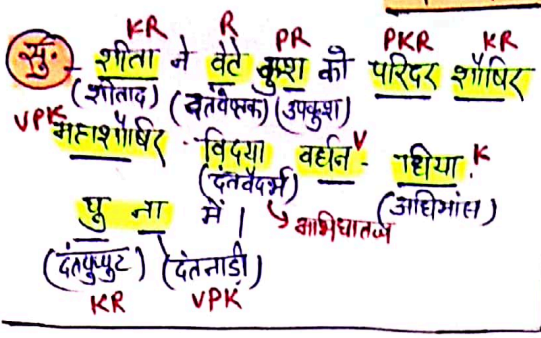 KR R PR PKR KR
सु. - शीता ने वेटे कुश को परिदर शौषिर
(शीताद) (दंतवेष्टक) (उपकुश)
VPK महाशौषिर - विदया वर्धन V - धिया K
(दंतवैदर्भ) ↳ अभिघातज (अधिमांस)
पु ना में।
(दंतपुप्पुट) (दंतनाड़ी)
KR VPK